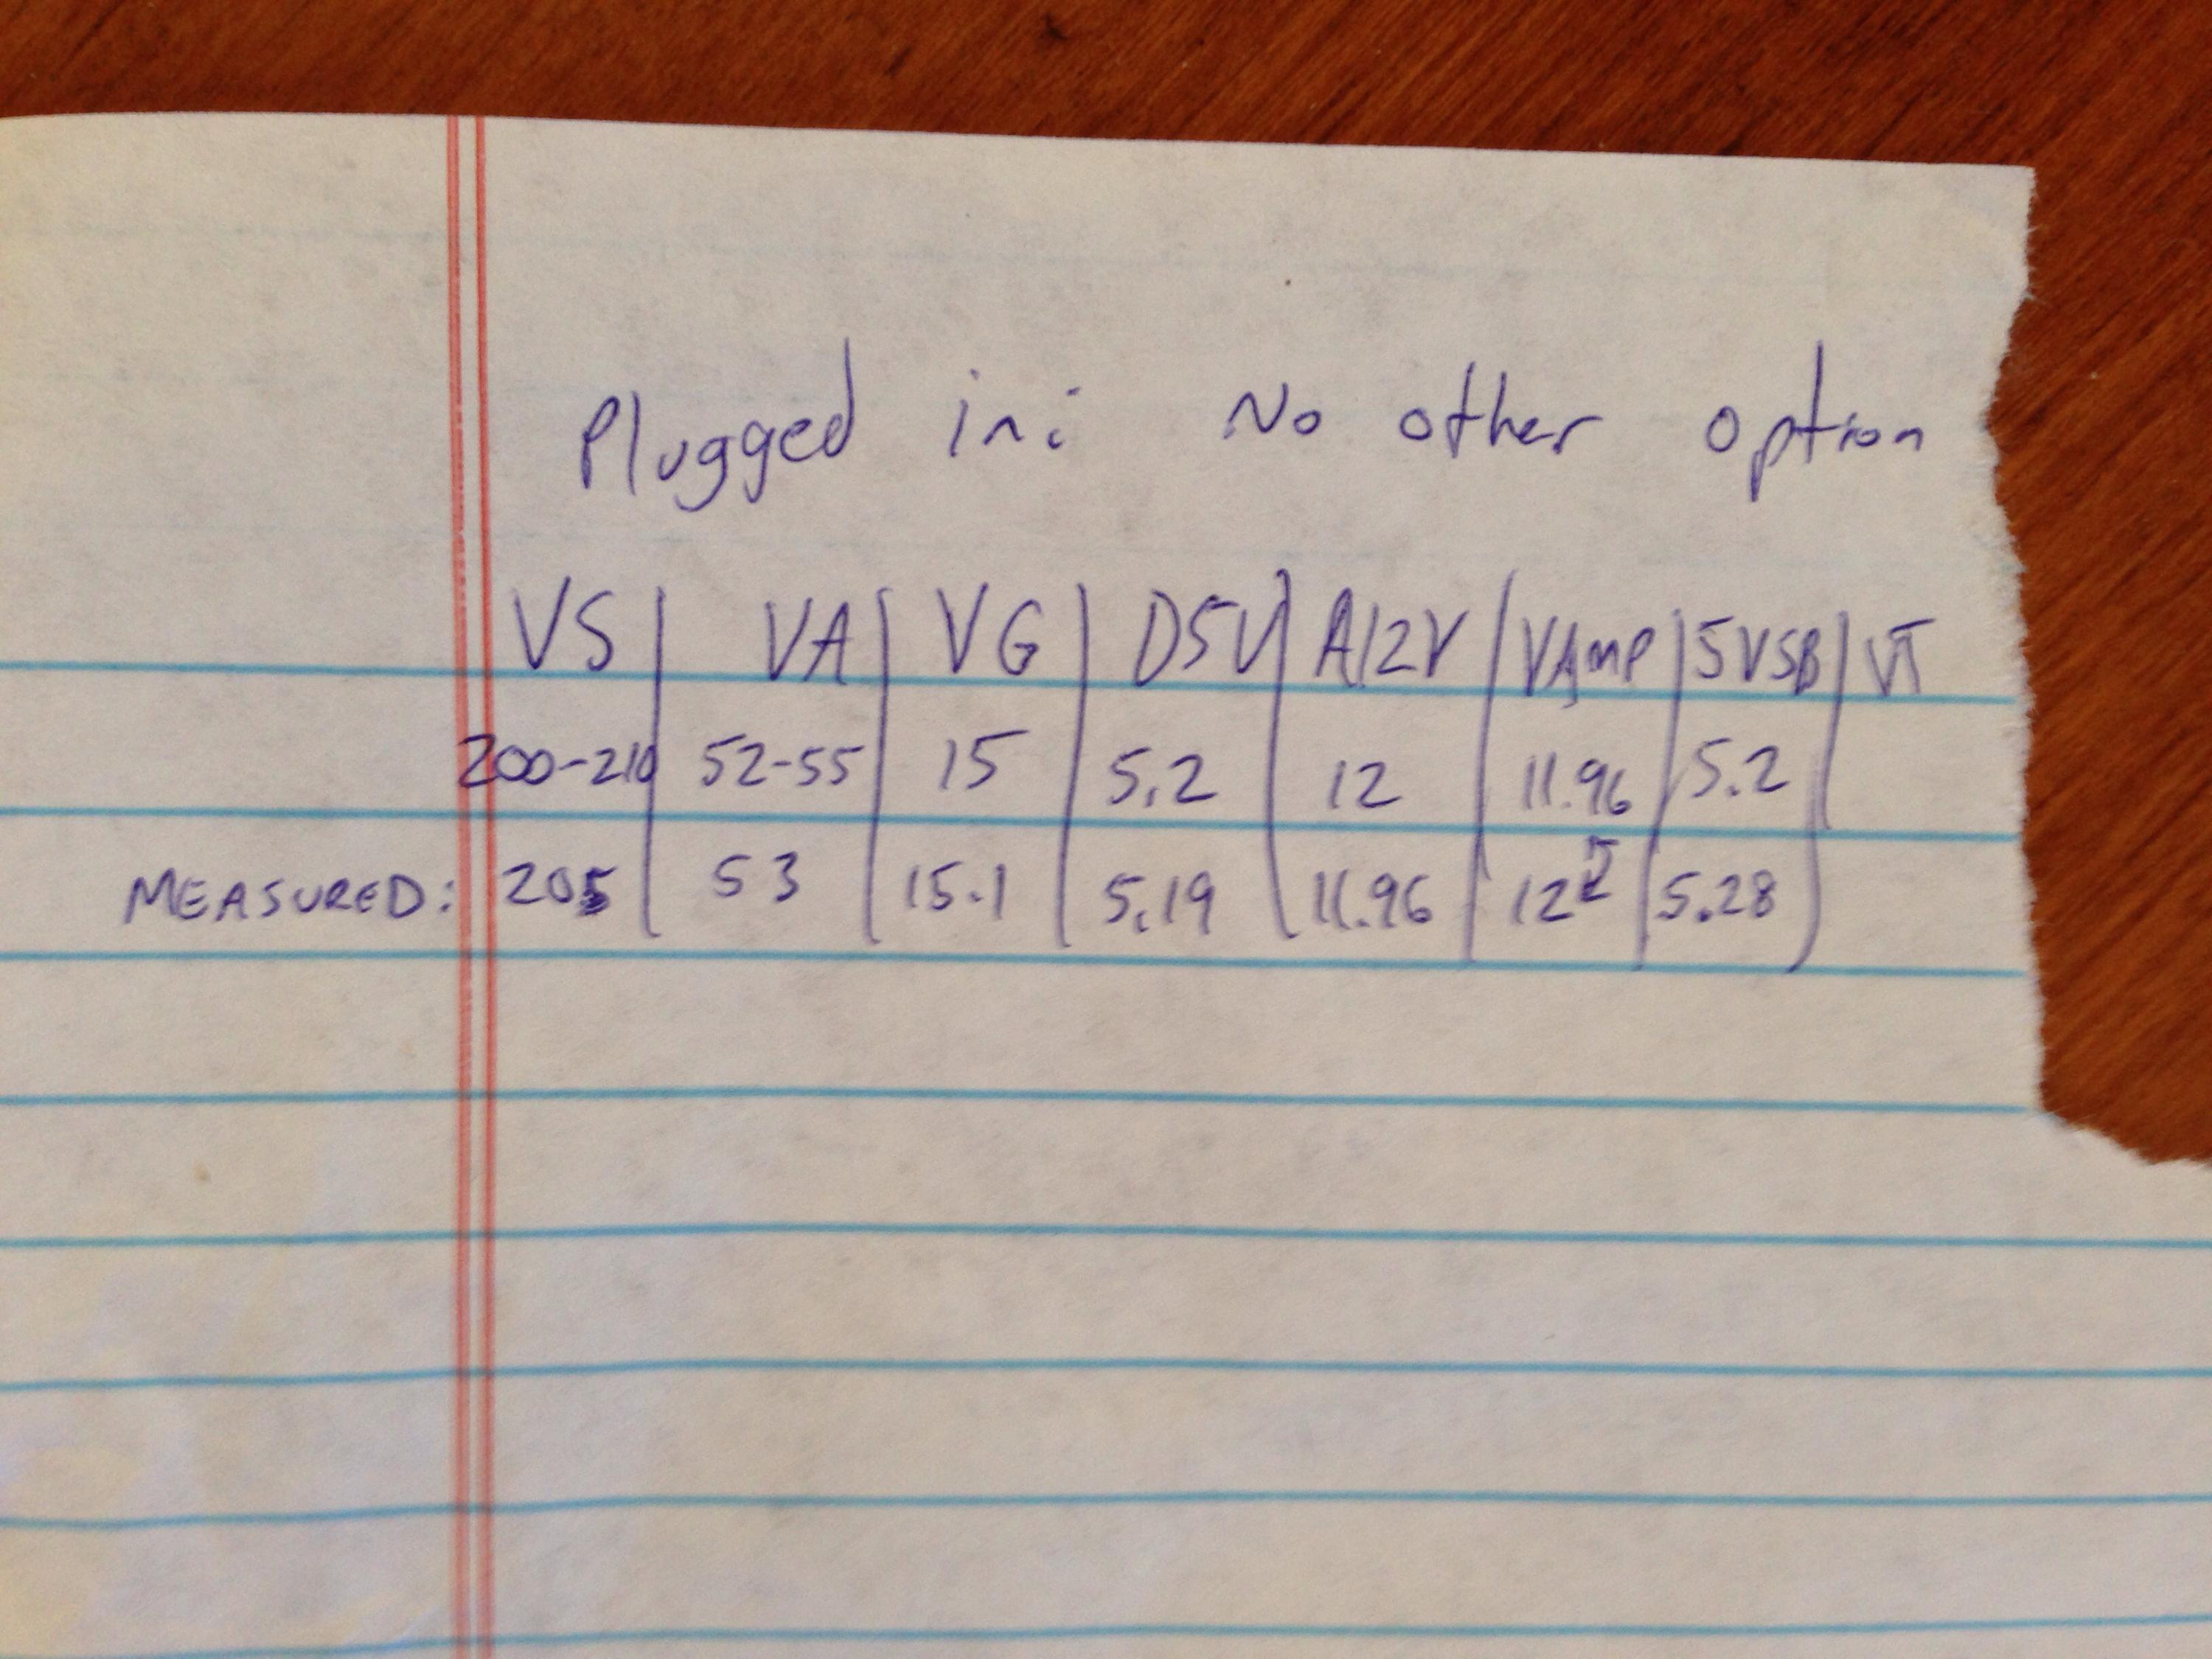 Plugged in: No other option
VS | VA | VG | D5V | A12V | VAMP | 5VSB | VT
200-210 | 52-55 | 15 | 5.2 | 12 | 11.96 | 5.2 |
MEASURED: 205 | 53 | 15.1 | 5.19 | 11.96 | 12 | 5.28 |